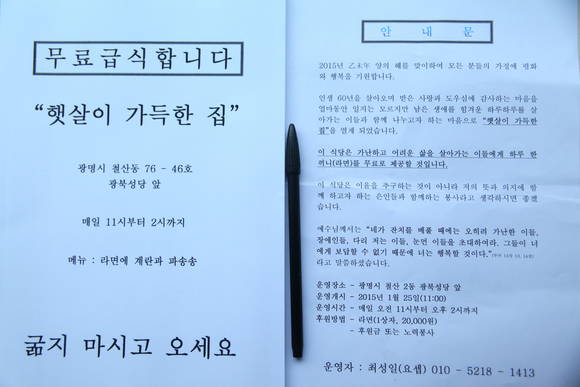 무료급식합니다
“햇살이 가득한 집”
광명시 철산동 76 - 46호
광북성당 앞
매일 11시부터 2시까지
메뉴 : 라면에 계란과 파송송
굶지 마시고 오세요
안 내 문
2015년 乙未年 양의 해를 맞이하여 모든 분들의 가정에 평화
와 행복을 기원합니다.
인생 60년을 살아오며 받은 사랑과 도우심에 감사하는 마음을
얼마동안 일지는 모르지만 남은 생애를 힘겨운 하루하루를 살
아가는 이들과 함께 나누고자 하는 마음으로 “햇살이 가득한
집”을 열게 되었습니다.
이 식당은 가난하고 어려운 삶을 살아가는 이들에게 하루 한
끼니(라면)를 무료로 제공할 것입니다.
이 식당은 이윤을 추구하는 것이 아니라 저의 뜻과 의지에 함
께 하고자 하는 은인들과 함께하는 봉사라고 생각하시면 좋겠
습니다.
예수님께서는 “네가 잔치를 베풀 때에는 오히려 가난한 이들,
장애인들, 다리 저는 이들, 눈먼 이들을 초대하여라. 그들이 너
에게 보답할 수 없기 때문에 너는 행복할 것이다.”
라고 말씀하셨습니다.
운영장소 - 광명시 철산 2동 광북성당 앞
운영개시 - 2015년 1월 25일(11:00)
운영시간 - 매일 오전 11시부터 오후 2시까지
후원방법 - 라면(1상자, 20,000원)
- 후원금 또는 노력봉사
운영자 : 최성일(요셉) 010 - 5218 - 1413